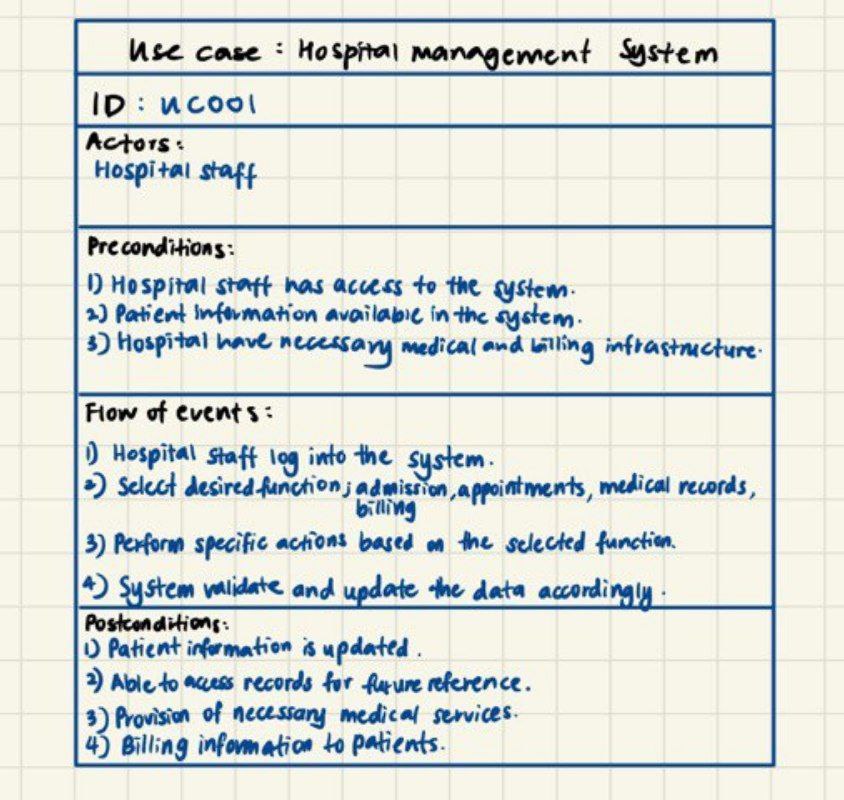 Use case : Hospital management System
ID : UC001
Actors :
Hospital staff
Preconditions:
1) Hospital staff has access to the system.
2) Patient Information available in the system.
3) Hospital have necessary medical and billing infrastructure.
Flow of events :
1) Hospital staff log into the system.
2) Select desired function; admission, appointments, medical records,
billing
3) Perform specific actions based on the selected function.
4) System validate and update the data accordingly.
Postconditions:
1) Patient information is updated.
2) Able to access records for future reference.
3) Provision of necessary medical services.
4) Billing information to patients.